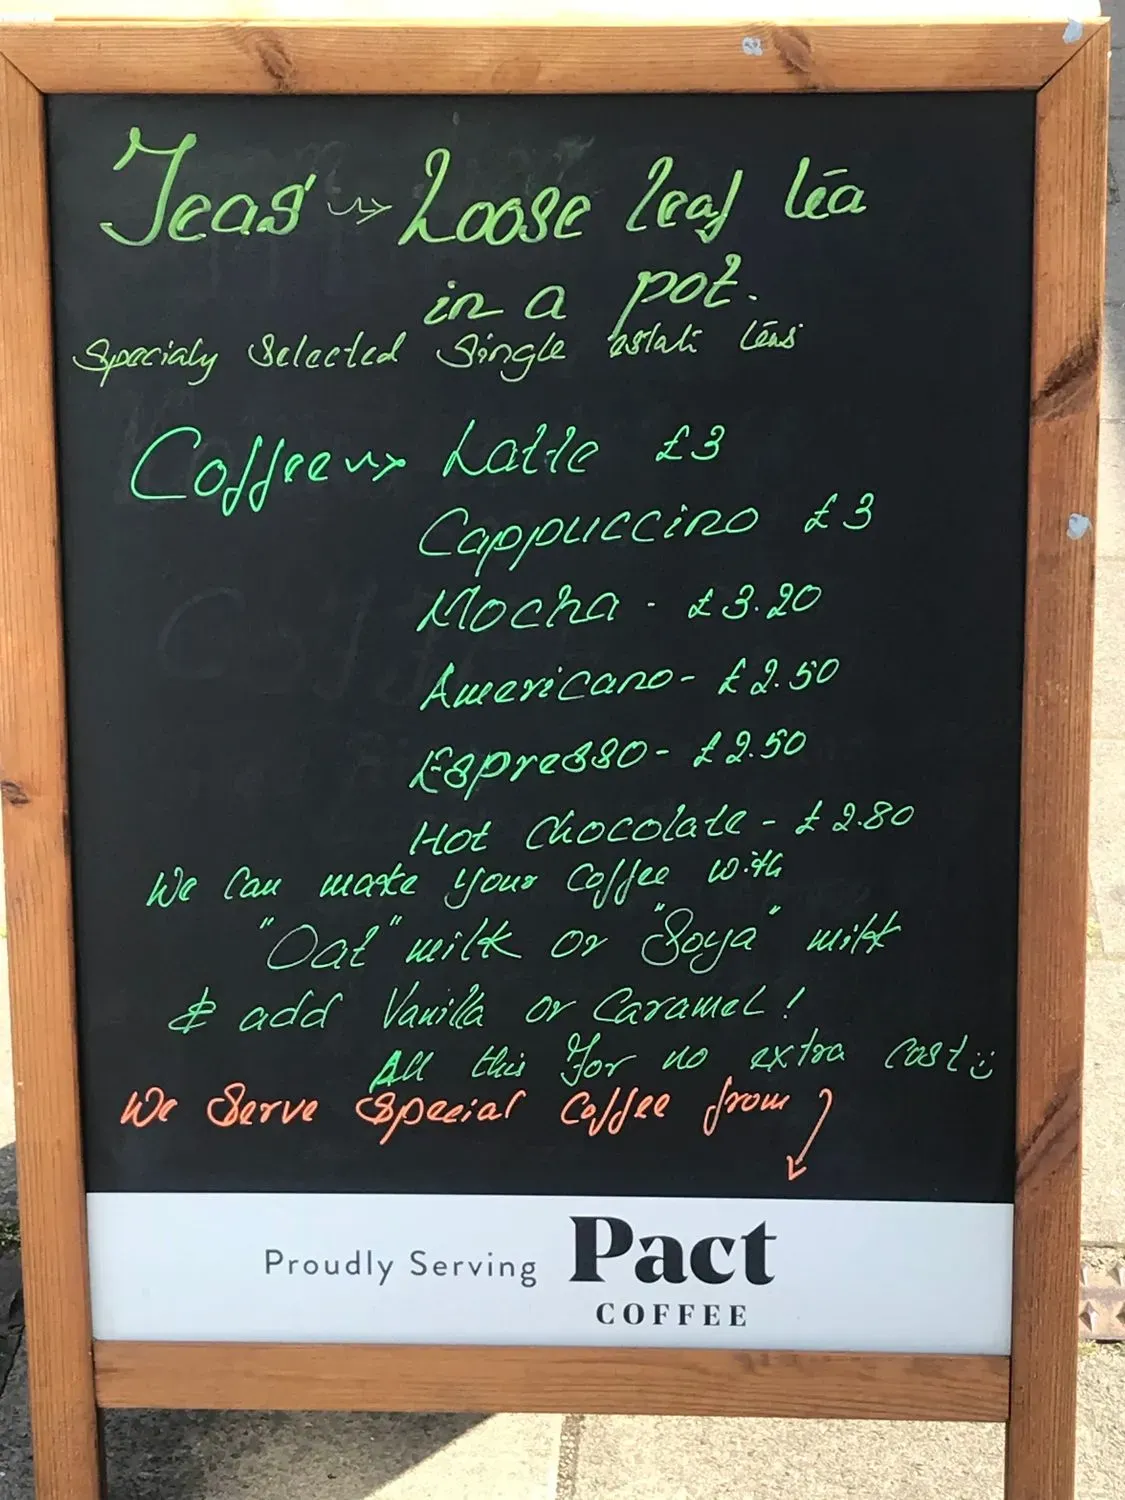 Teas → Loose leaf tea
in a pot.
Specialy Selected Single estate teas
Coffee → Latte £3
Cappuccino £3
Mocha - £3.20
Americano - £2.50
Espresso - £2.50
Hot Chocolate - £2.80
We can make your coffee with
"Oat" milk or "Soya" milk
& add Vanilla or Caramel!
All this for no extra cost :)
We Serve Special coffee from
Proudly Serving Pact
COFFEE